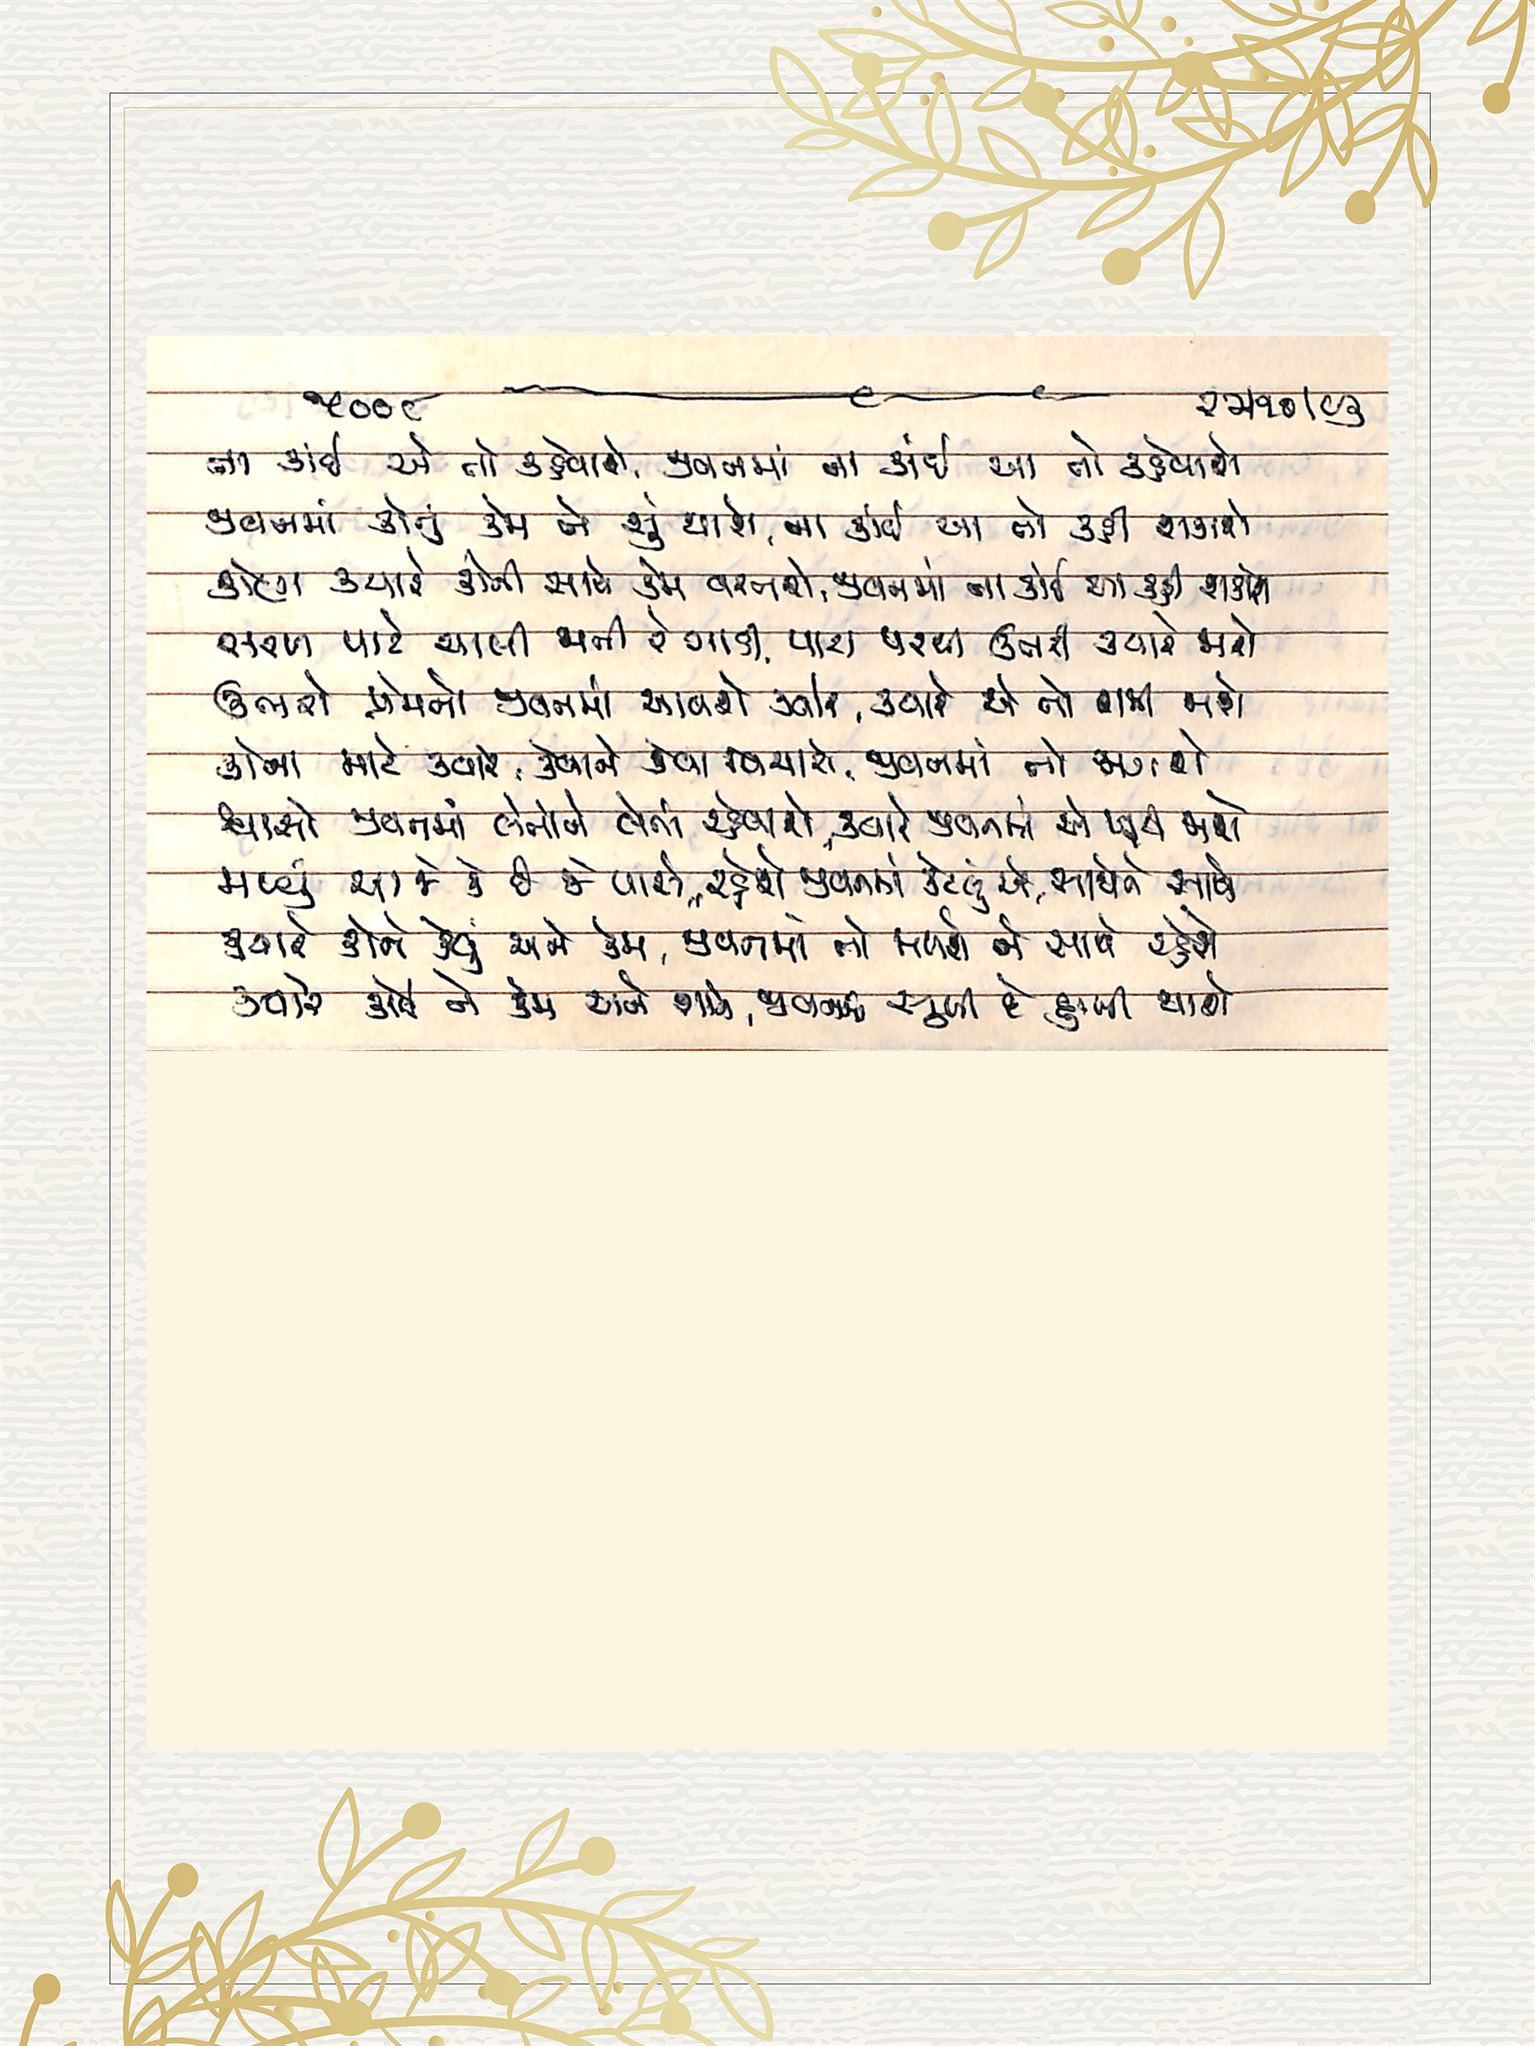 ૫૦૦૯
ના કાંઈ એ તો કહેવાશે, જીવનમાં ના કાંઈ આ તો કહેવાશે
જીવનમાં કોનું કેમ ને શું થાશે, ના કાંઈ આ તો કહી શકાશે
કોણ ક્યારે કોની સાથે કેમ વરતશે, જીવનમાં ના કોઈ આ કહી શકશે
સરળ પાટે ચાલી જતી રે ગાડી, પાટા પરથી ઊતરી ક્યારે જાશે
ઊભરો પ્રેમનો જીવનમાં આવશે ક્યારે, ક્યારે એ તો શમી જાશે
કોના માટે ક્યારે, કેવાને કેવા વિચારો, જીવનમાં તો જાગશે
શ્વાસો જીવનમાં લેતોને લેતો રહેવાશે, ક્યારે જીવનમાં એ ખૂટી જાશે
મળ્યું આ જે કે છે જે પાસે, રહેશે જીવનમાં કેટલું એ, સાથેને સાથે
ક્યારે કોને કેવું અને કેમ, જીવનમાં તો મળશે ને સાથે રહેશે
ક્યારે કોઈ ને કેમ અને શાને, જીવનમાં સુખી કે દુઃખી થાશે